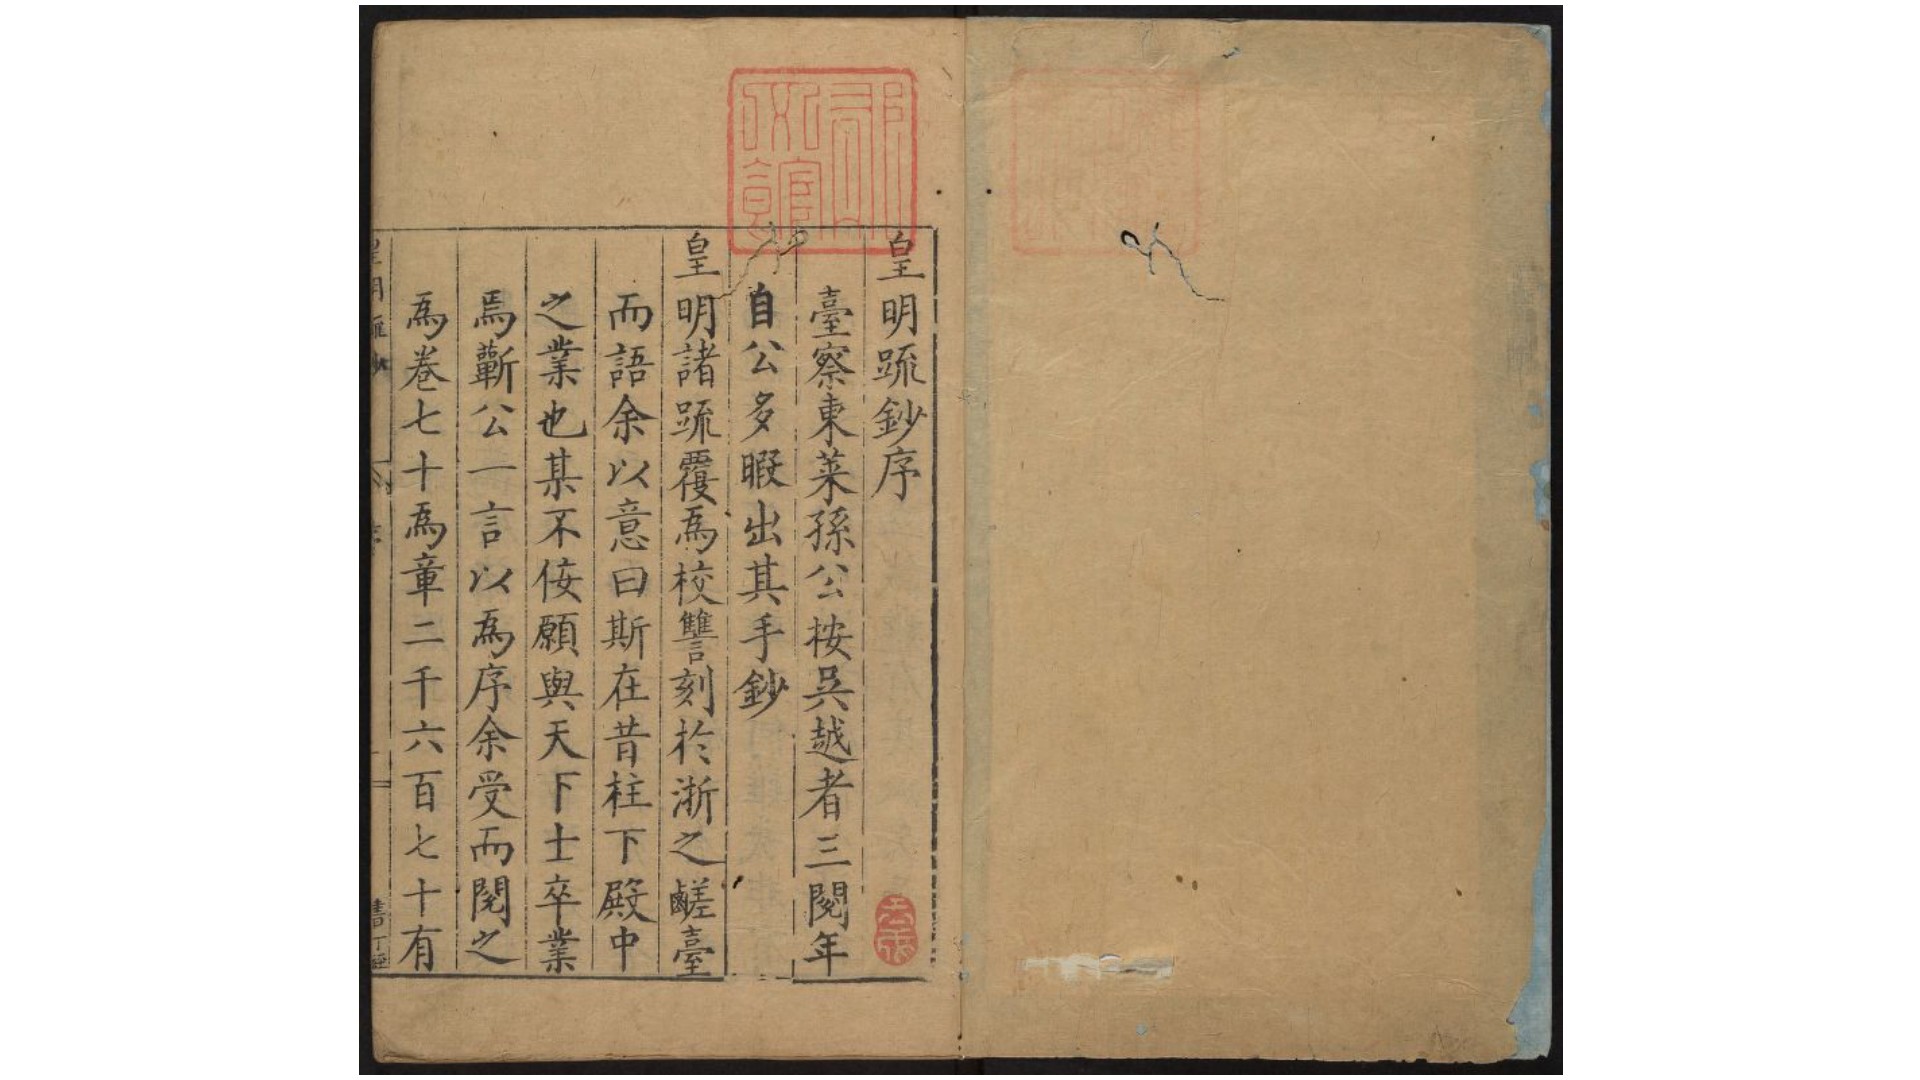 皇明疏鈔序
臺察東萊孫公按吳越者三閱年
自公多暇出其手鈔
皇明諸疏覆爲校讐刻於浙之鹺臺
而語余以意曰斯在昔柱下殿中
之業也某不佞願與天下士卒業
焉蘄公一言以爲序余受而閱之
爲卷七十爲章二千六百七十有